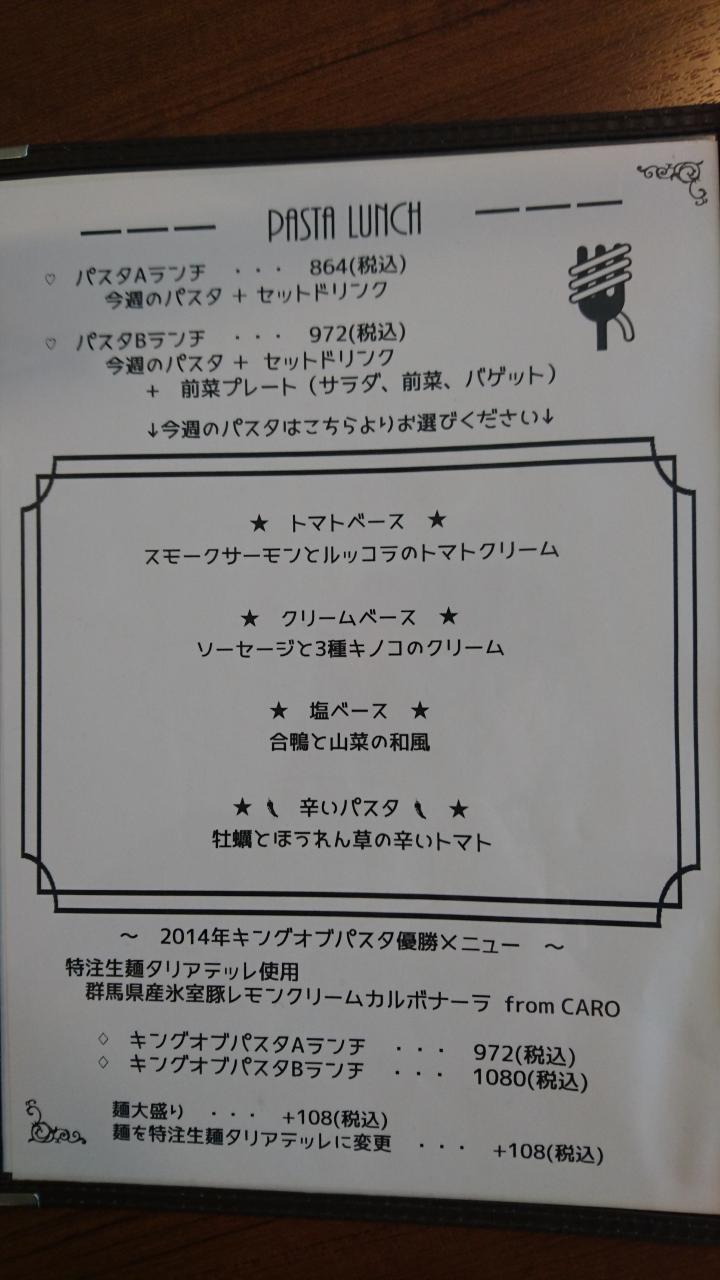 PASTA LUNCH
♡ パスタAランチ ・・・ 864(税込)
今週のパスタ + セットドリンク
♡ パスタBランチ ・・・ 972(税込)
今週のパスタ + セットドリンク
+ 前菜プレート（サラダ、前菜、バゲット）
↓今週のパスタはこちらよりお選びください↓
★ トマトベース ★
スモークサーモンとルッコラのトマトクリーム
★ クリームベース ★
ソーセージと3種キノコのクリーム
★ 塩ベース ★
合鴨と山菜の和風
★ 辛いパスタ ★
牡蠣とほうれん草の辛いトマト
～ 2014年キングオブパスタ優勝メニュー ～
特注生麺タリアテッレ使用
群馬県産氷室豚レモンクリームカルボナーラ from CARO
♢ キングオブパスタAランチ ・・・ 972(税込)
♢ キングオブパスタBランチ ・・・ 1080(税込)
麺大盛り ・・・ +108(税込)
麺を特注生麺タリアテッレに変更 ・・・ +108(税込)